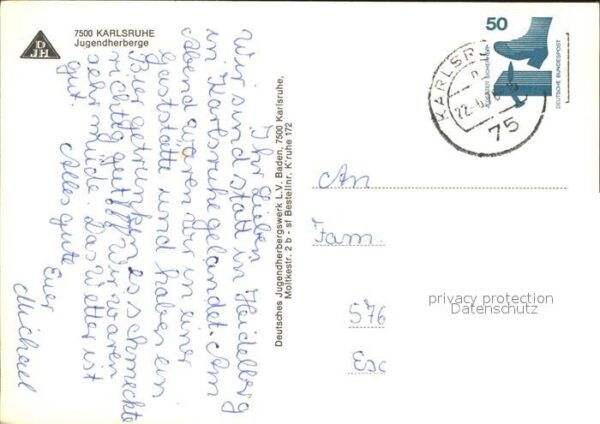 DJH
7500 KARLSRUHE
Jugendherberge
Ihr Lieben
Wir sind statt in Heidelberg
in Karlsruhe gelandet. Am
Abend waren wir in einer
Gaststätte und haben ein
Bier getrunken, es schmeckte
richtig gut. Wir waren
sehr müde. Das Wetter ist
gut.
Alles gute
Euer
Michael
Deutsches Jugendherbergswerk L.V. Baden, 7500 Karlsruhe,
Moltkestr. 2 b - sf Bestellnr. K'ruhe 172
50
DEUTSCHE BUNDESPOST
KARLSR
75
An
Fam.
576
Esc
privacy protection
Datenschutz